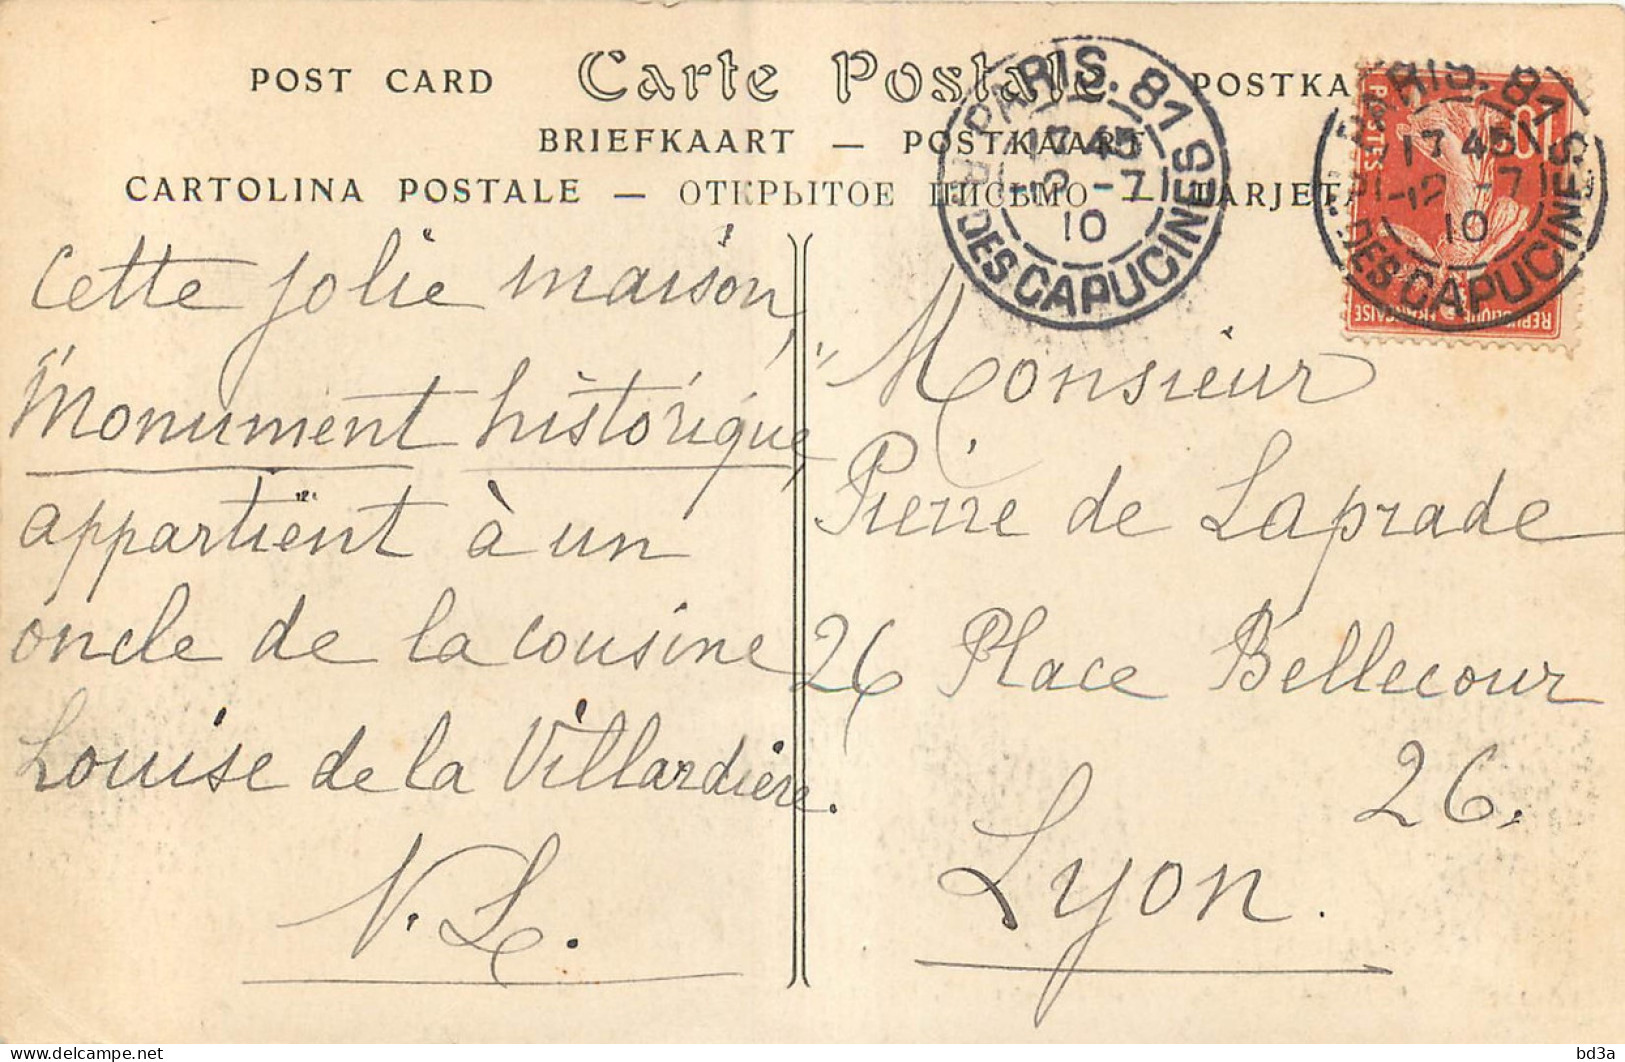 POST CARD Carte Postale POSTKA
BRIEFKAART — POSTKAART
CARTOLINA POSTALE — ОТКРЫТОЕ ПИСЬМО — TARJETA
PARIS. 81
17 45
12 -7
10
R. DES CAPUCINES
PARIS. 81
17 45
12 -7
10
R. DES CAPUCINES
10
POSTES
REPUBLIQUE FRANÇAISE
Cette jolie maison,
"Monument historique,"
appartient à un
oncle de la cousine
Louise de la Villardière.
V. L.
Monsieur
Pierre de Laprade
26 Place Bellecour
26.
Lyon.
delcampe.net
bd3a